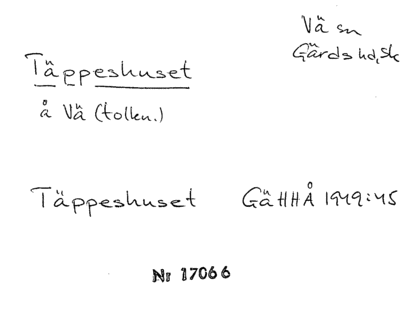 Vä sn
Gärds hd, Sk
Täppeshuset
å Vä (tollen.)
Täppeshuset GäHHÅ 1949:45
Nr 17066